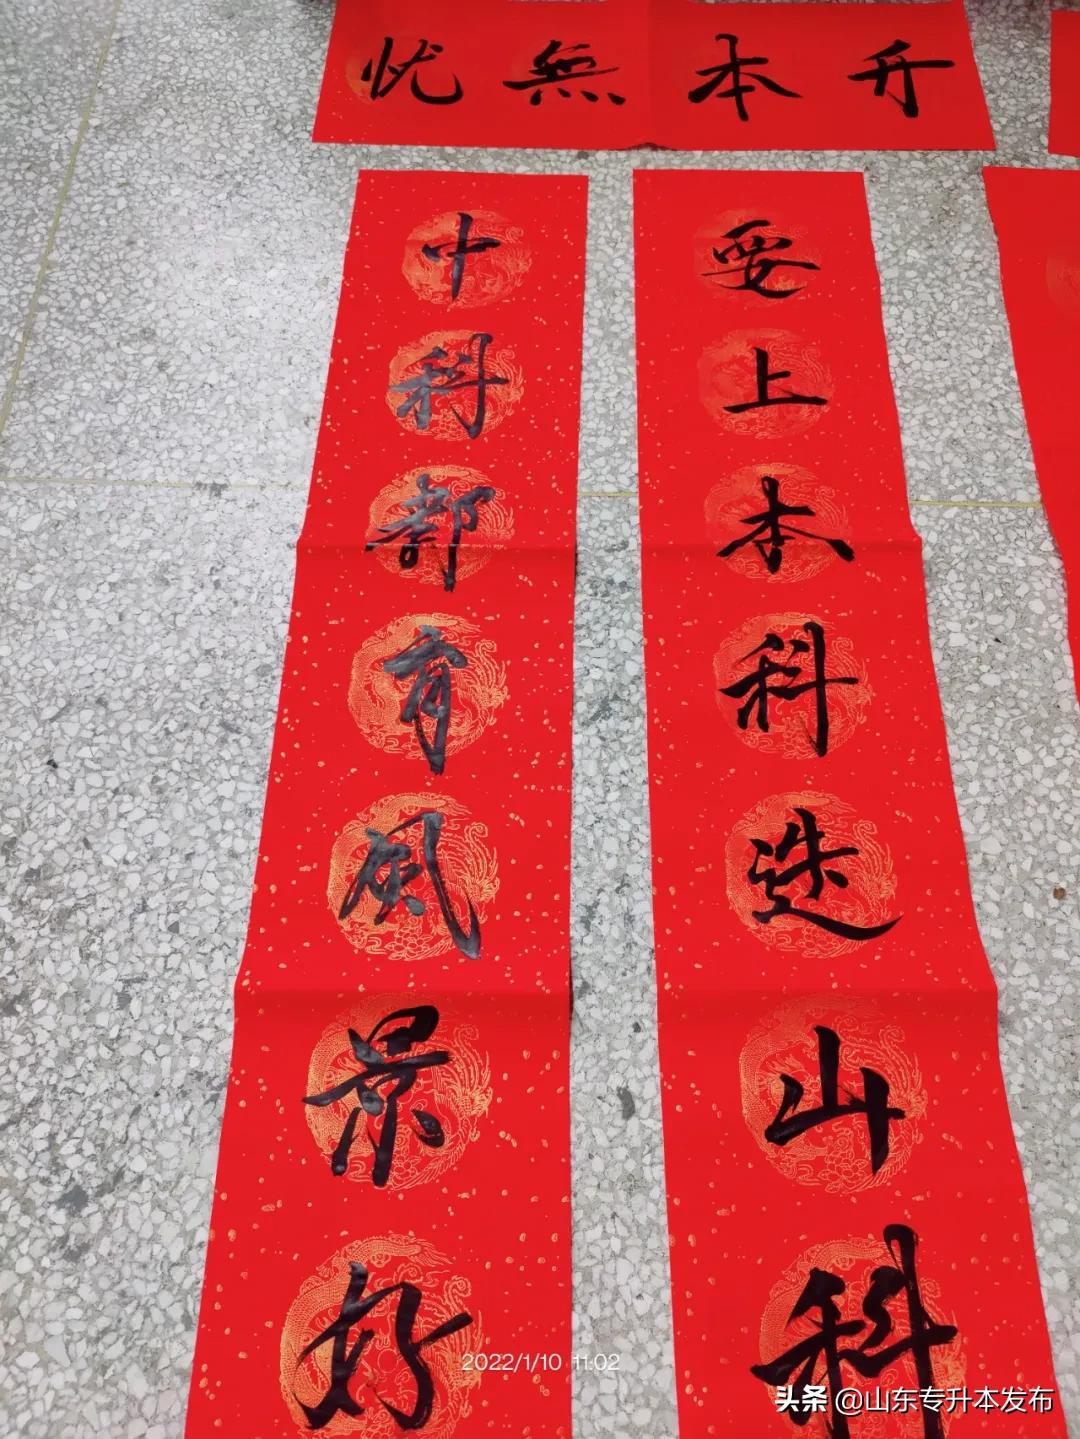 升本無忧
要上本科选山科
中科部育風景好
2022/1/10 11:02
头条 @山东专升本发布